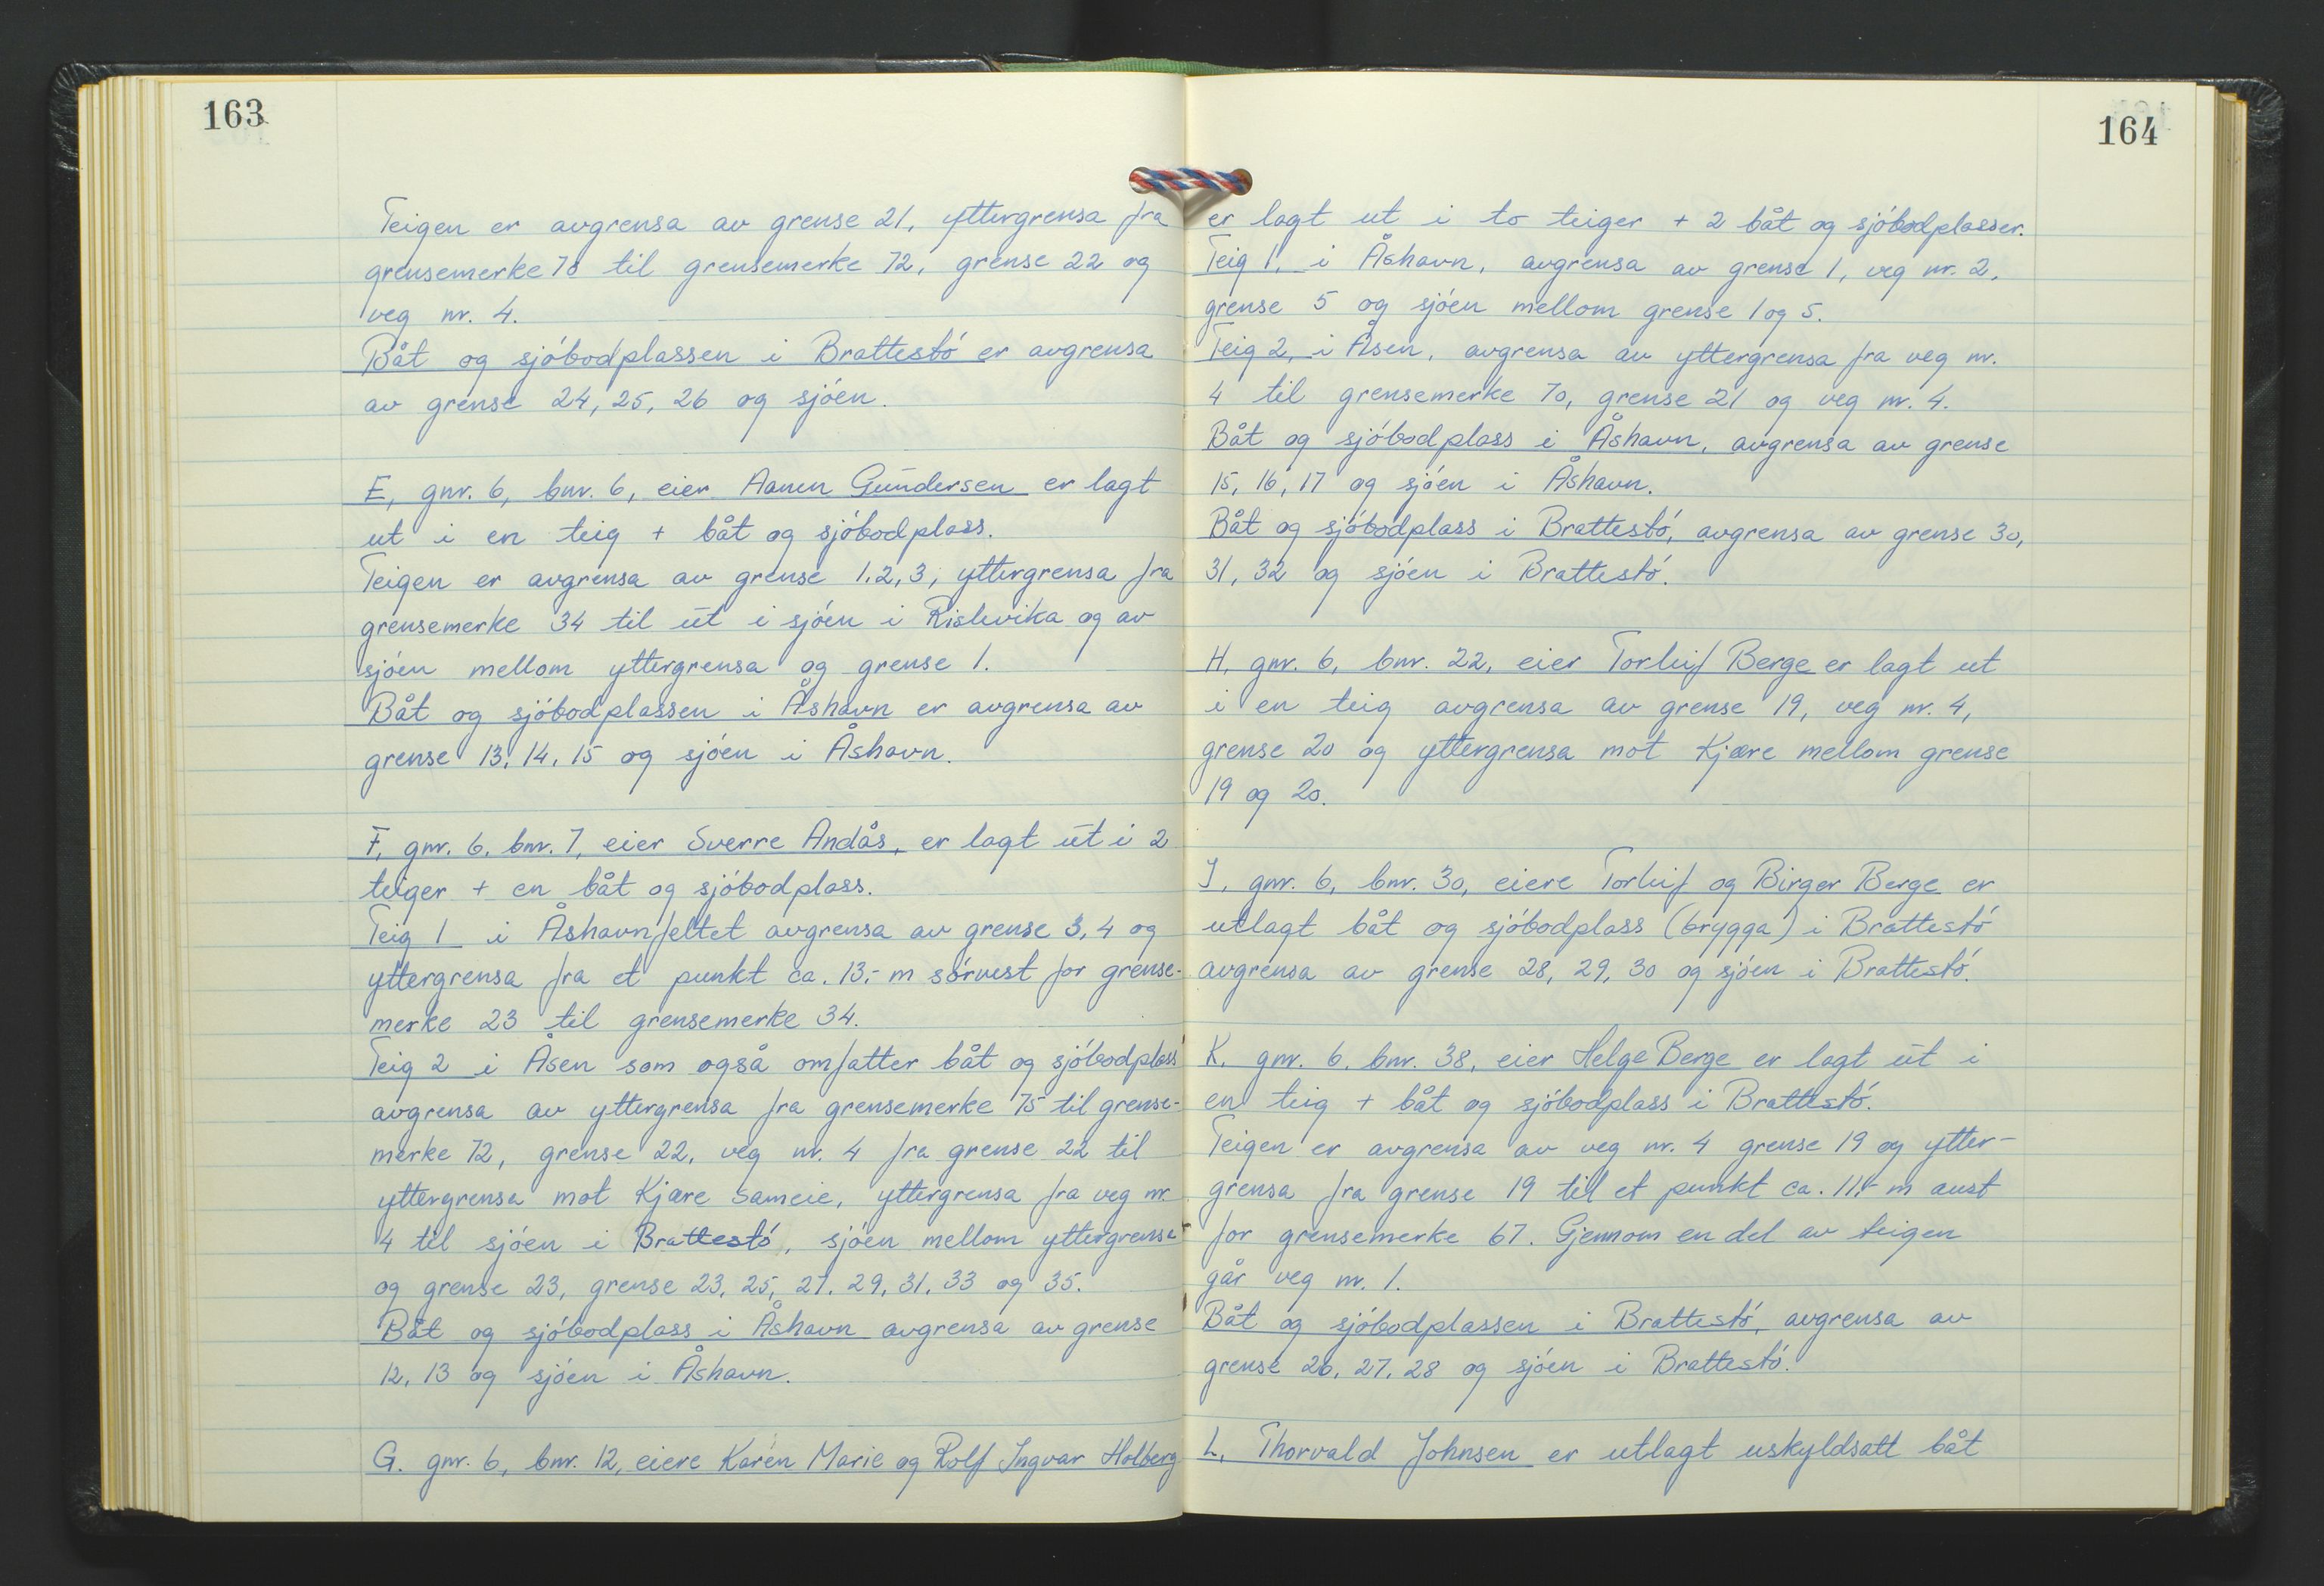 163
Teigen er avgrensa av grense 21, yttergrensa fra
grensemerke 70 til grensemerke 72, grense 22 og
veg nr. 4.
Båt og sjóbodplassen i Brattestó er avgrensa
av grense 24, 25, 26 og sjóen.
E, gnr. 6, bnr. 6, eier Aanen Gundersen er lagt
ut i en teig + båt og sjóbodplass.
Teigen er avgrensa av grense 1, 2, 3, yttergrensa fra
grensemerke 34 til ut i sjóen i Rislevika og av
sjóen mellom yttergrensa og grense 1.
Båt og sjóbodplassen i Åshavn er avgrensa av
grense 13, 14, 15 og sjóen i Åshavn.
F, gnr. 6, bnr. 7, eier Sverre Andås, er lagt ut i 2
teiger + en båt og sjóbodplass.
Teig 1 i Åshavnfeltet avgrensa av grense 3, 4 og
yttergrensa fra et punkt ca. 13,- m sórvest for grense-
merke 23 til grensemerke 34.
Teig 2 i Åsen som også omfatter båt og sjóbodplass
avgrensa av yttergrensa fra grensemerke 75 til grense-
merke 72, grense 22, veg nr. 4 fra grense 22 til
yttergrensa mot Kjære sameie, yttergrensa fra veg nr.
4 til sjóen i Brattestó, sjóen mellom yttergrensa
og grense 23, grense 23, 25, 27, 29, 31, 33 og 35.
Båt og sjóbodplass i Åshavn avgrensa av grense
12, 13 og sjóen i Åshavn.
G. gnr. 6, bnr. 12, eiere Karen Marie og Rolf Ingvar Holberg
164
er lagt ut i to teiger + 2 båt og sjóbodplasser.
Teig 1, i Åshavn, avgrensa av grense 1, veg nr. 2,
grense 5 og sjóen mellom grense 1 og 5.
Teig 2, i Åsen, avgrensa av yttergrensa fra veg nr.
4 til grensemerke 70, grense 21 og veg nr. 4.
Båt og sjóbodplass i Åshavn, avgrensa av grense
15, 16, 17 og sjóen i Åshavn.
Båt og sjóbodplass i Brattestó, avgrensa av grense 30,
31, 32 og sjóen i Brattestó.
H, gnr. 6, bnr. 22, eier Torleif Berge er lagt ut
i en teig avgrensa av grense 19, veg nr. 4,
grense 20 og yttergrensa mot Kjære mellom grense
19 og 20.
J, gnr. 6, bnr. 30, eiere Torleif og Birger Berge er
utlagt båt og sjóbodplass (brygga) i Brattestó
avgrensa av grense 28, 29, 30 og sjóen i Brattestó.
K, gnr. 6, bnr. 38, eier Helge Berge er lagt ut i
en teig + båt og sjóbodplass i Brattestó.
Teigen er avgrensa av veg nr. 4 grense 19 og ytter-
grensa fra grense 19 til et punkt ca. 11,- m aust
for grensemerke 67. Gjennom en del av teigen
går veg nr. 1.
Båt og sjóbodplassen i Brattestó, avgrensa av
grense 26, 27, 28 og sjóen i Brattestó.
L, Thorvald Johnsen er utlagt uskyldsatt båt